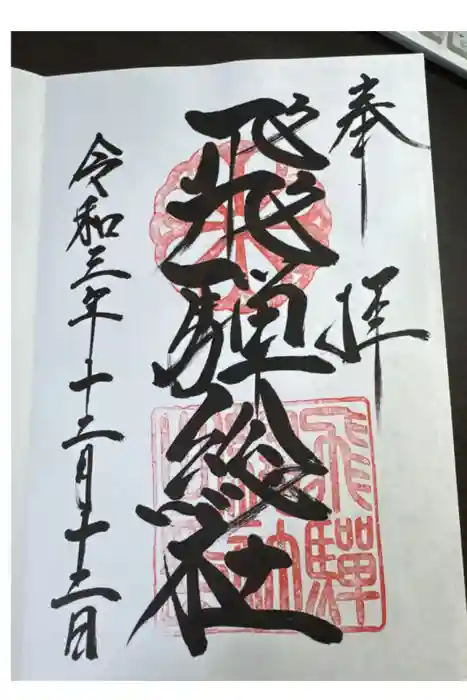 奉拝
飛騨総社
令和三年十二月十二日
飛驒